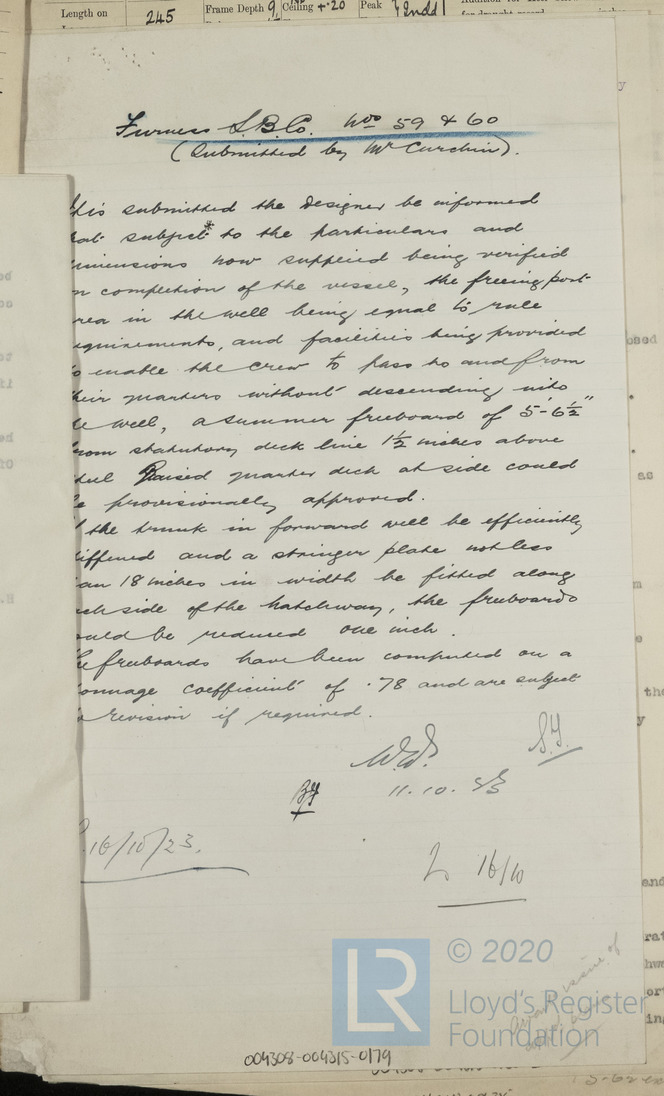 Length on
245
Frame Depth 9
Ceiling + .20
Peak
Furness S.B.Co. Nos 59 & 60
(Submitted by Mr Curchin).
his submitted the Designer be informed
hat subject* to the particulars and
imensions now supplied being verified
n completion of the vessel, the freeing port
rea in the well being equal to rule
equirements, and facilities being provided
o enable the crew to pass to and from
heir quarters without descending into
he well, a summer freeboard of 5'-6½"
rom statutory deck line 1½ inches above
teel Raised quarter deck at side could
e provisionally approved.
f the trunk in forward well be efficiently
tiffened and a stringer plate not less
an 18 inches in width be fitted along
ach side of the hatchway, the freeboards
ould be reduced one inch.
he freeboards have been computed on a
onnage coefficient of .78 and are subject
o revision if required.
11.10.23
16/10/23.
16/10
© 2020
Lloyd's Register
Foundation
LR
004308-004315-0179